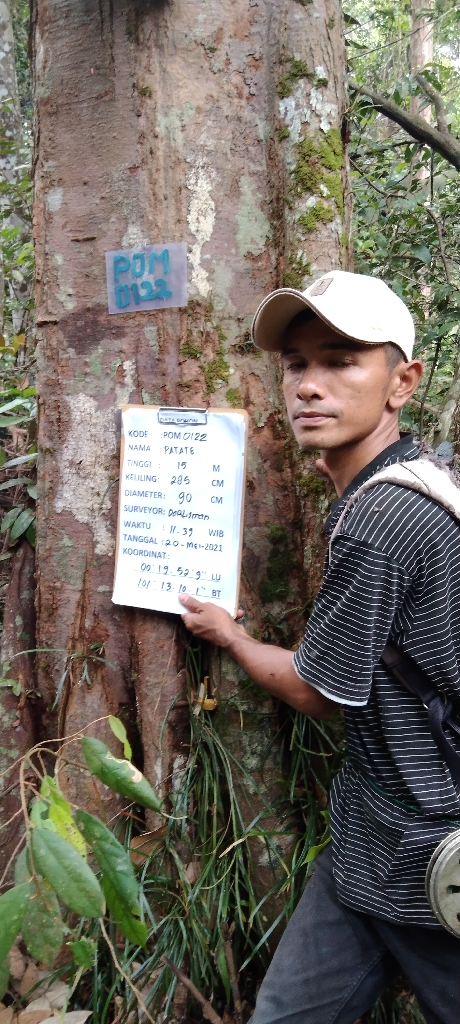 POM
0122
DATA POHON
KODE : POM 0122
NAMA : PATATE
TINGGI : 15 M
KELILING: 285 CM
DIAMETER: 90 CM
SURVEYOR: Doalisman
WAKTU : 11.39 WIB
TANGGAL : 20-MEI-2021
KOORDINAT:
00° 19' 52' 9" LU
101° 13' 10' 1" BT